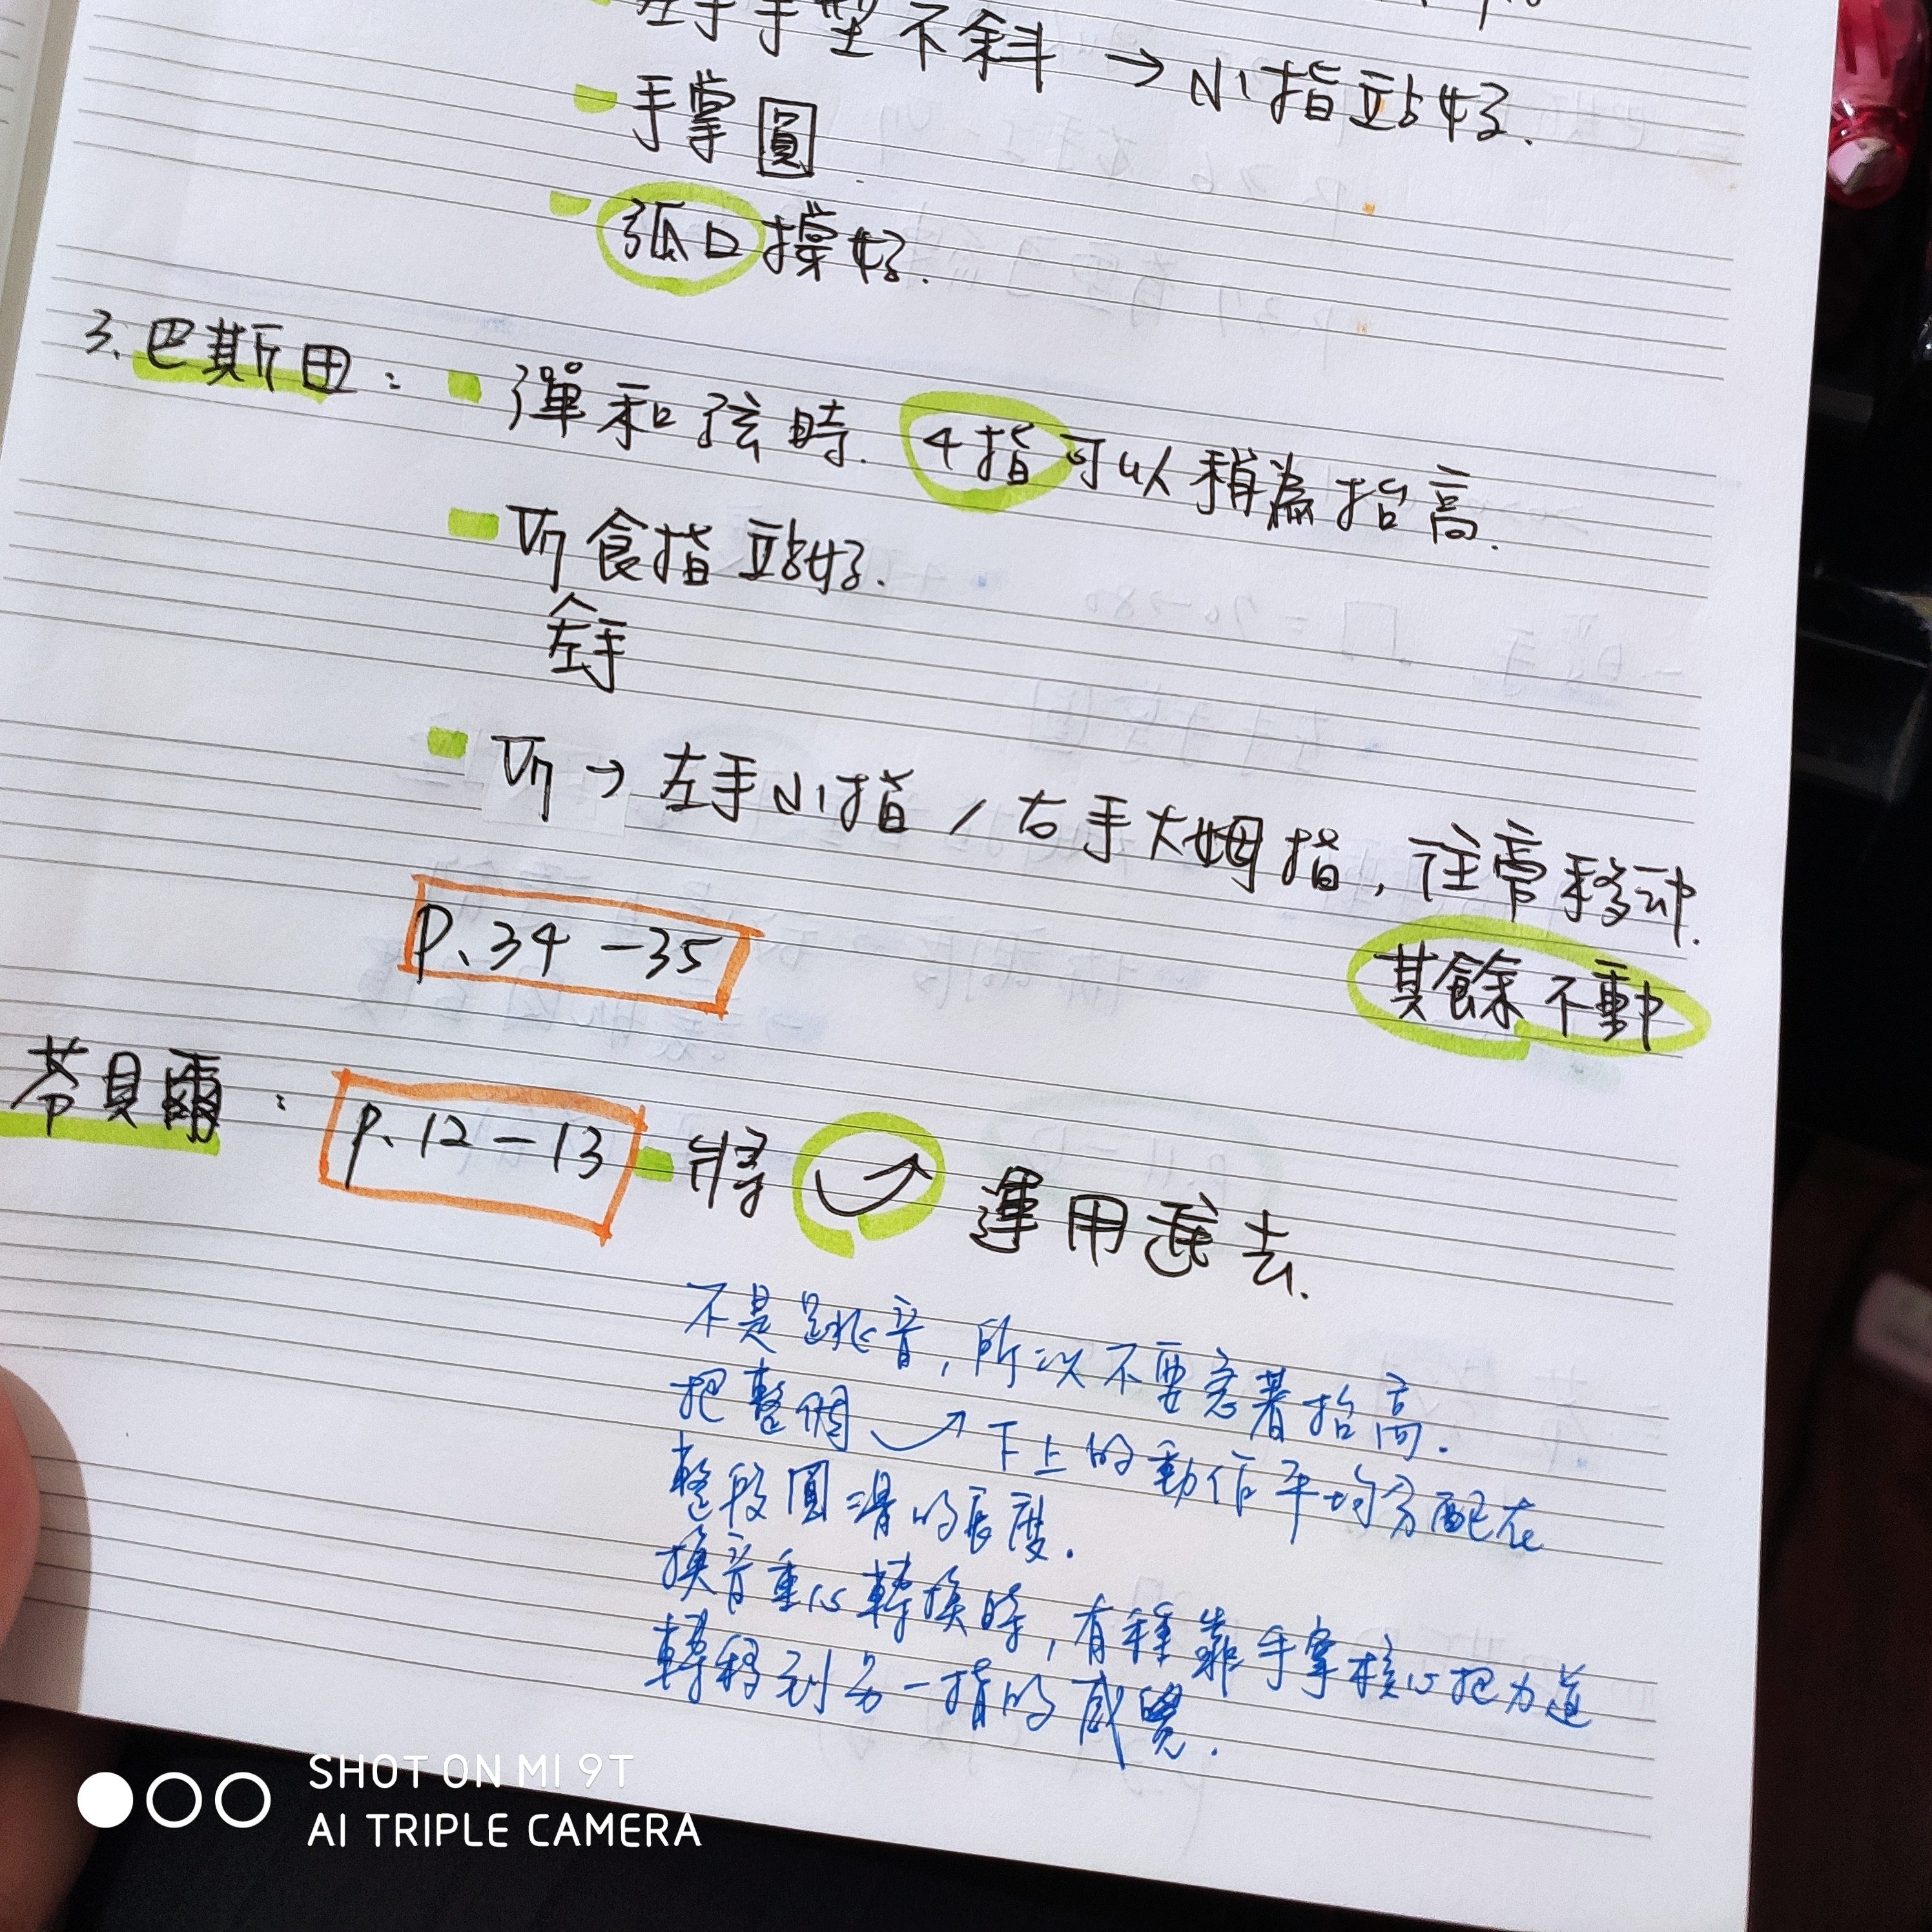 左手手型不斜 → 小指站好.
手掌圓
弧口撐好.
3. 巴斯田: 彈和弦時. 4指可以稍為抬高.
听食指站好.
左手
听→左手小指 / 右手大姆指, 往旁移动.
其餘不動
P. 34-35
苓貝爾: P. 12-13 將 運用進去.
不是跳音, 所以不要急著抬高.
把整個 下上的動作平均分配在
整段圓滑的長度.
換音重心轉換時, 有種靠手掌核心把力道
轉移到另一指的感覺.
SHOT ON MI 9T
AI TRIPLE CAMERA